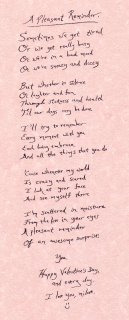 A Pleasant Reminder.
Sometimes we get tired
Or we get really busy
Or we're in a bad mood
Or we're sneezy and dizzy
But whether in silence
Or lighter and fun,
Through sickness and health
Till our days may be done
I'll try to remember
Every moment with you
Each loving embrace
And all the things that you do
'Cause whenever my world
Is crazy and scared
I look at your face
And see myself there
I'm scattered in moisture
From the fire in your eyes
A pleasant reminder
Of an awesome surprise
You.
Happy Valentine's Day,
and every day.
I love you,